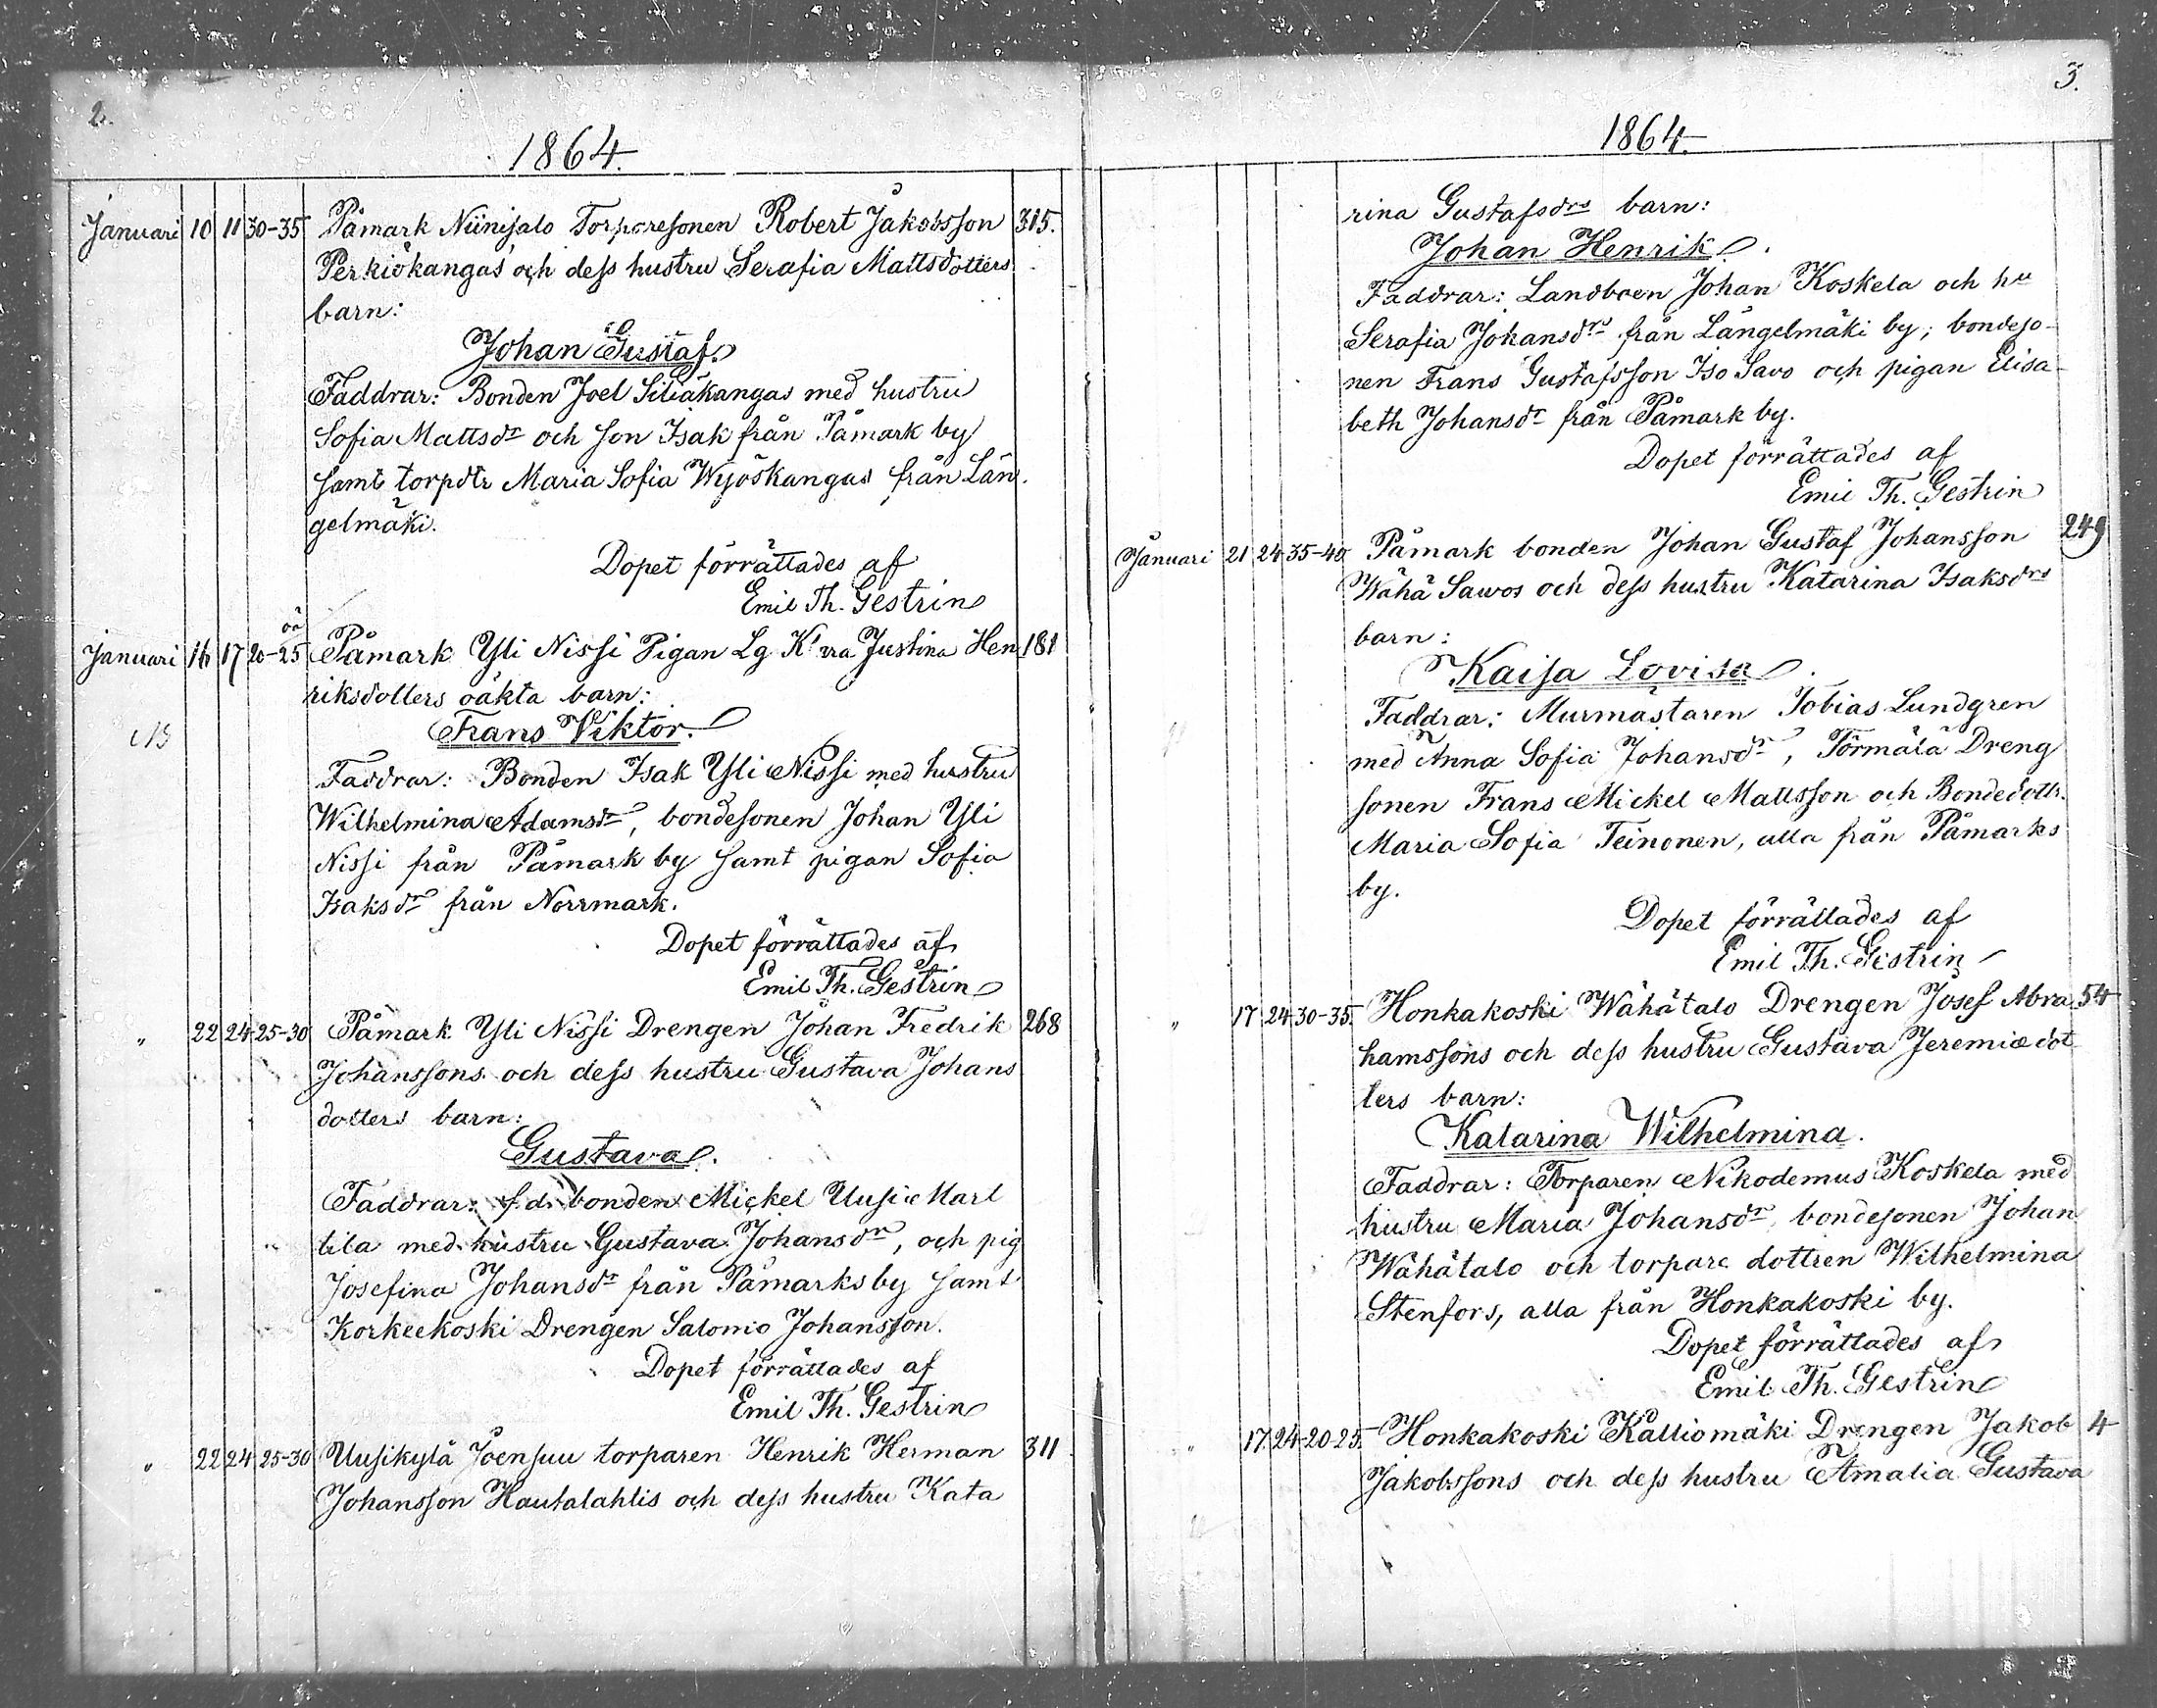 2.
1864.
Januari 10 11 30-35 Påmark Niinisalo Torparesonen Robert Jakobsson 315.
Perkiökangas och dess hustru Serafia Mattsdotters
barn:
Johan Gustaf.
Faddrar: Bonden Joel Siliäkangas med hustru
Sofia Mattsdr och son Isak från Påmark by
samt torpdtr Maria Sofia Wyöskangas från Län
gelmäki.
Dopet förrättades af
Emil Th. Gestrin
oä
Januari 16 17 20-25 Påmark Yli Nissi Pigan Lg Kvra Justina Hen 181
riksdotters oäkta barn:
Frans Viktor.
Faddrar: Bonden Isak Yli Nissi med hustru
Wilhelmina Adamsdr, bondesonen Johan Yli
Nissi från Påmark by samt pigan Sofia
Isaksdr från Norrmark.
Dopet förrättades af
Emil Th. Gestrin
" 22 24 25-30 Påmark Yli Nissi Drengen Johan Fredrik 268
Johanssons och dess hustru Gustava Johans
dotters barn:
Gustava.
Faddrar: f.d. bonden Mickel Uusi Mart
tila med hustru Gustava Johansdr, och pig
Josefina Johansdr från Påmarks by samt
Korkeekoski Drengen Salomo Johansson.
Dopet förrättades af
Emil Th. Gestrin
" 22 24 25-30 Uusikylä Joensuu torparen Henrik Herman 311
Johansson Hautalahtis och dess hustru Kata
3.
1864.
rina Gustafsdrs barn:
Johan Henrik.
Faddrar: Landboen Johan Koskela och hu
Serafia Johansdrs från Längelmäki by; bondeso-
nen Frans Gustafsson Iso Savo och pigan Elisa-
beth Johansdr från Påmark by.
Dopet förrättades af
Emil Th. Gestrin
Januari 21 24 35-40 Påmark bonden Johan Gustaf Johansson 249
Wähä Sawos och dess hustru Katarina Isaksdrs
barn:
Kaisa Lovisa.
Faddrar: Murmästaren Tobias Lundgren
med Anna Sofia Johansdr, Törmälä Dreng
sonen Frans Mickel Mattsson och Bondedottr.
Maria Sofia Teinonen, alla från Påmarks
by.
Dopet förrättades af
Emil Th. Gestrin
" 17 24 30-35 Honkakoski Wähätalo Drengen Josef Abra 54
hamssons och dess hustru Gustava Jeremiædot
ters barn:
Katarina Wilhelmina.
Faddrar: Torparen Nikodemus Koskela med
hustru Maria Johansdr, bondesonen Johan
Wähätalo och torpare dottren Wilhelmina
Stenfors, alla från Honkakoski by.
Dopet förrättades af
Emil Th. Gestrin
" 17 24 20-25 Honkakoski Kalliomäki Drengen Jakob 4
Jakobssons och dess hustru Amalia Gustava